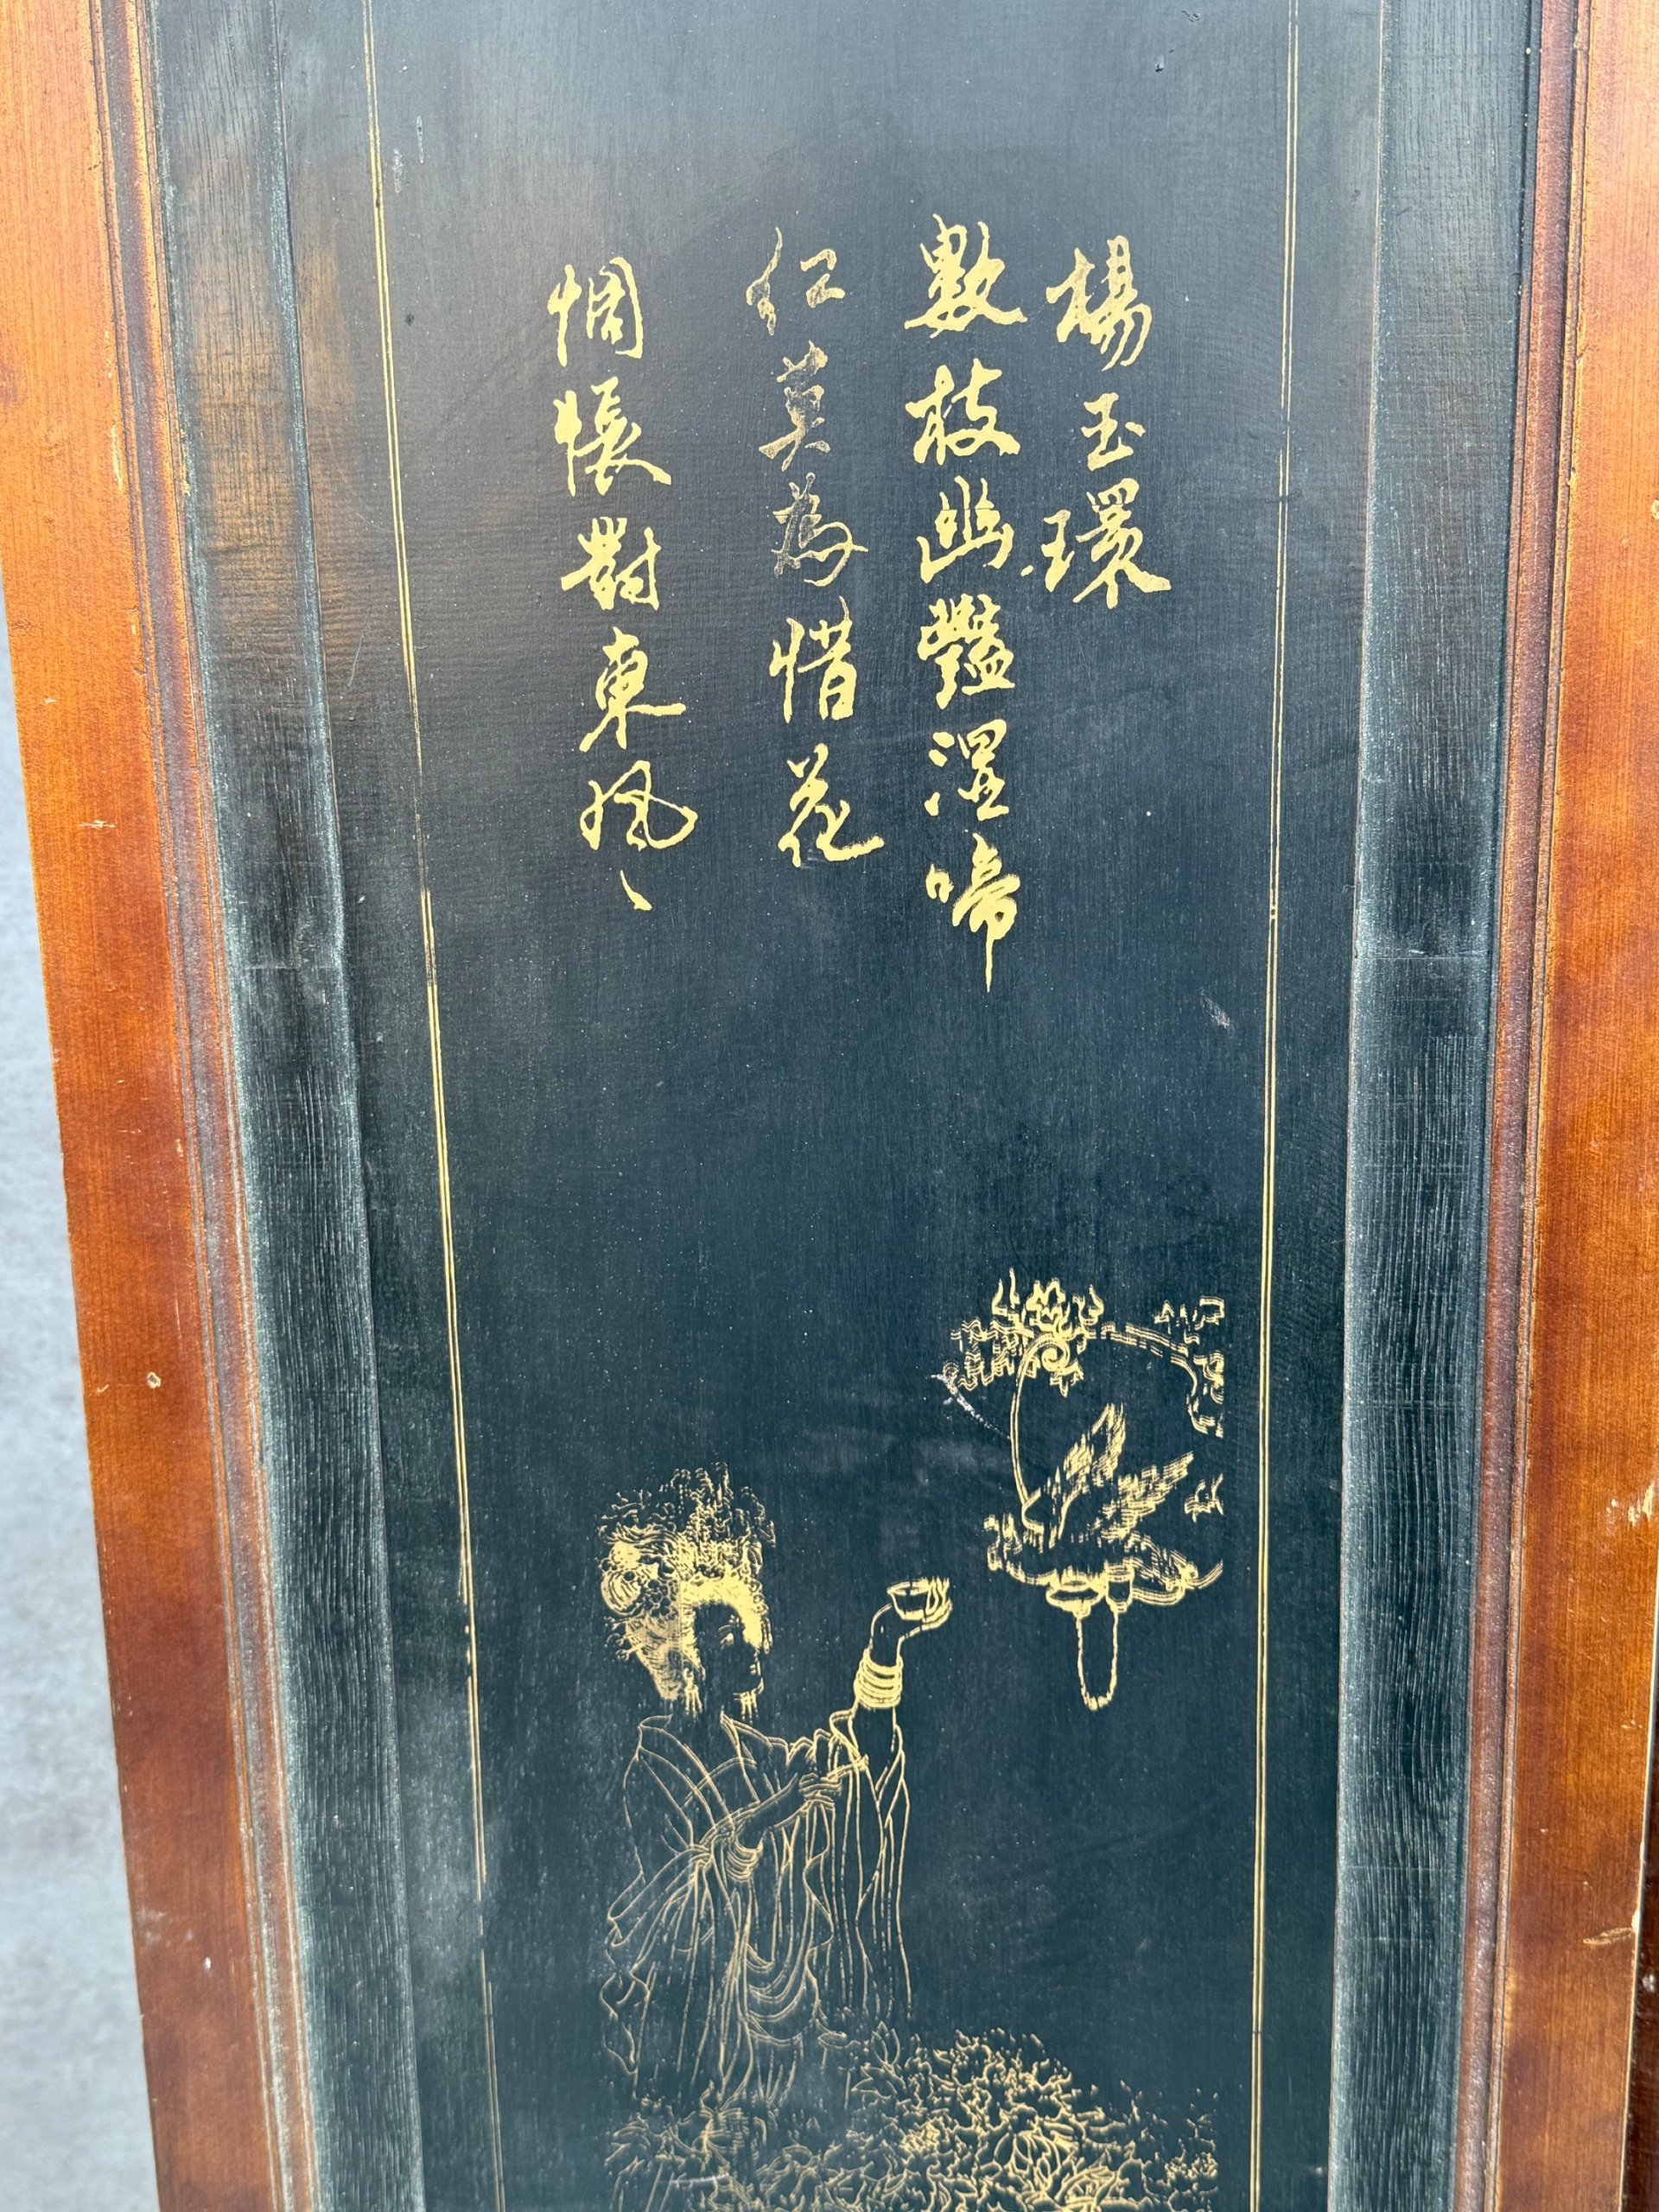 楊玉環
數枝幽豔湿啼
红莫為惜花
惆悵對東風、